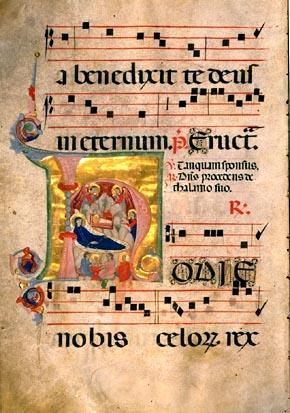 a benedixit te deus
in eternum. P. Eruct.
V. Tanquam sponsus.
R. Dñs procedens de
thalamo suo.
R.
HODIE
nobis celoꝝ rex